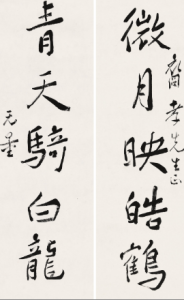 微月映皓鶴
孝先生正
青天騎白龍
无量